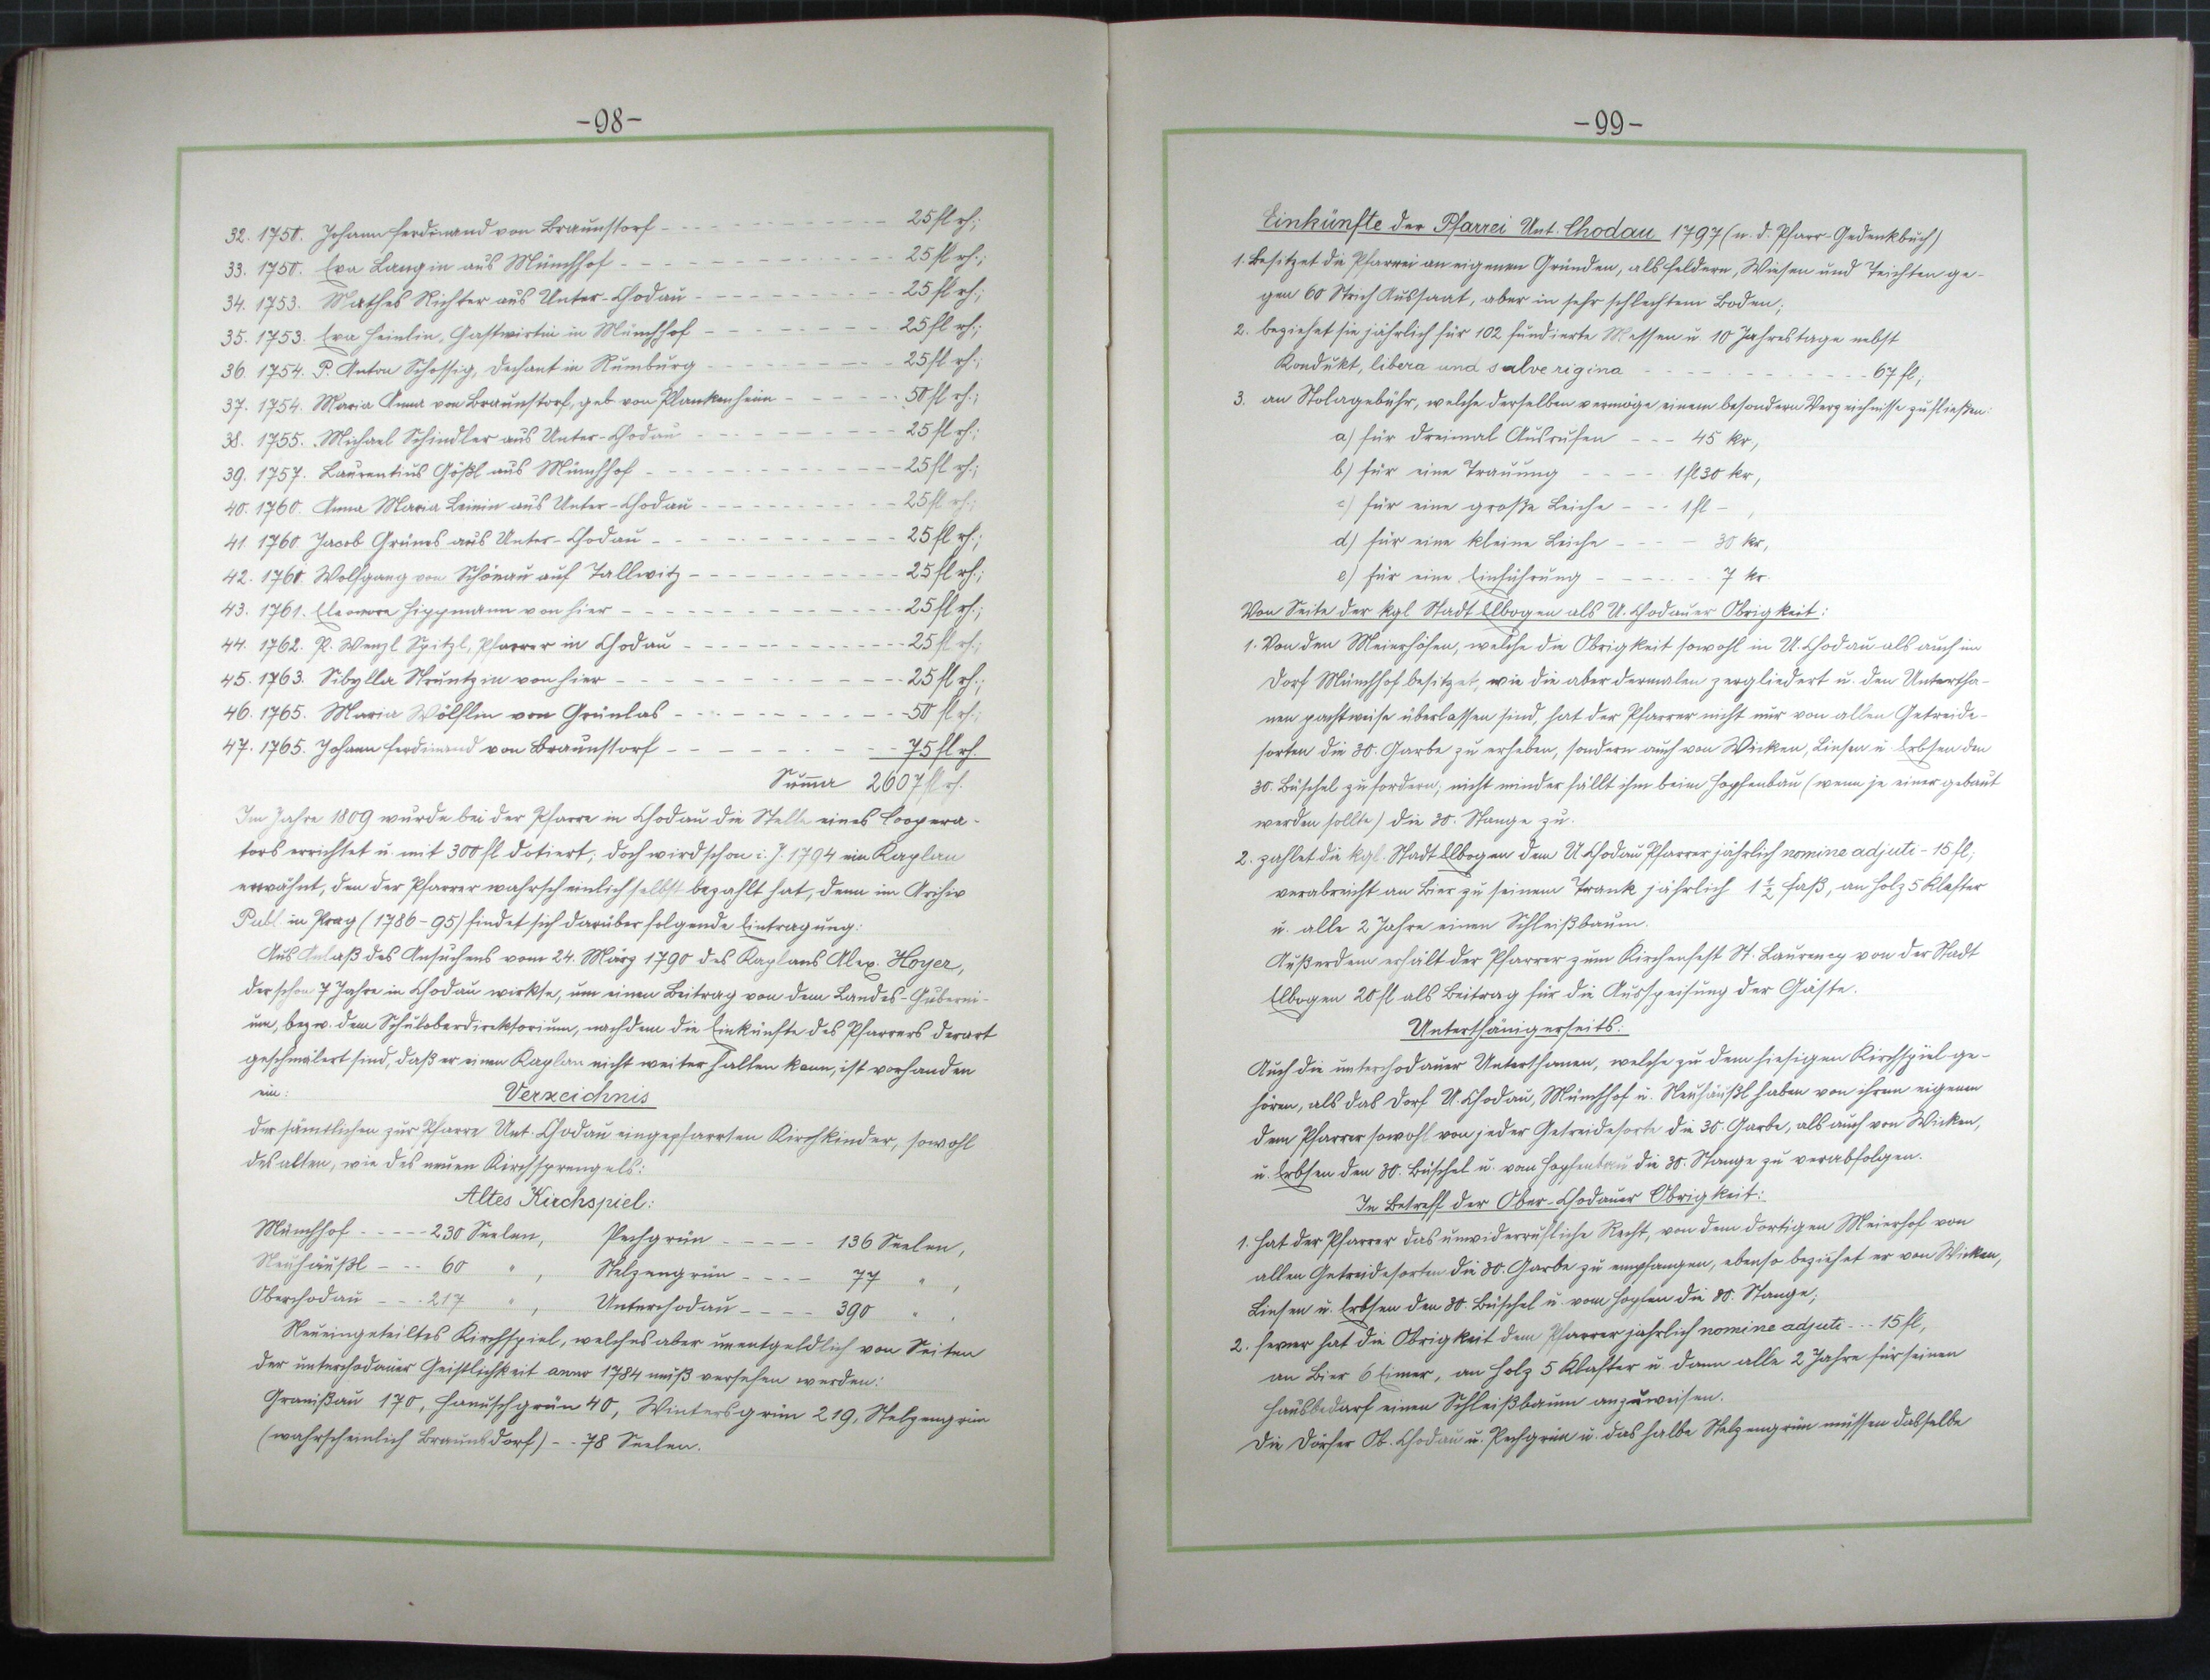 -98-
32. 1750. Johann Ferdinand von Braunstorf - - - 25 fl rh.;
33. 1750. Eva Langin aus Münchhof - - - 25 fl rh.;
34. 1753. Mathes Richter aus Unter-Chodau - - - 25 fl rh.;
35. 1753. Eva Heinlin, Gastwirtin in Münchhof - - - 25 fl rh.;
36. 1754. P. Anton Schossig, Dechant in Rumburg - - - 25 fl rh.;
37. 1754. Maria Anna von Braunstorf, geb von Plankenheim - - - 50 fl rh.;
38. 1755. Michael Schindler aus Unter-Chodau - - - 25 fl rh.;
39. 1757. Laurentius Gößl aus Münchhof - - - 25 fl rh.;
40. 1760. Anna Maria Leinin aus Unter-Chodau - - - 25 fl rh.;
41. 1760. Jacob Grünes aus Unter-Chodau - - - 25 fl rh.;
42. 1760. Wolfgang von Schönau auf Tallwitz - - - 25 fl rh.;
43. 1761. Eleonore Hippmann von hier - - - 25 fl rh.;
44. 1762. P. Wenzl Spitzl, Pfarrer in Chodau - - - 25 fl rh.;
45. 1763. Sibylla Struntzin von hier - - - 25 fl rh.;
46. 1765. Maria Wölflin von Grünlas - - - 50 fl rh.;
47. 1765. Johann Ferdinand von Braunstorf - - - 75 fl rh.
Summa 2607 fl rh.
Im Jahre 1809 wurde bei der Pfarre in Chodau die Stelle eines Coopera-
tors errichtet u. mit 300 fl dotiert; doch wird schon i. J. 1794 ein Kaplan
erwähnt, den der Pfarrer wahrscheinlich selbst bezahlt hat, denn im Archiv
Publ. in Prag (1786-95) findet sich darüber folgende Eintragung:
Aus Anlaß des Ansuchens vom 24. März 1790 des Kaplans Alex. Hoyer,
der schon 7 Jahre in Chodau wirkte, um einen Beitrag von dem Landes-Guberni-
um, bezw. dem Schuloberdirektorium, nachdem die Einkünfte des Pfarrers derart
geschmälert sind, daß er einen Kaplan nicht weiter halten kann, ist vorhanden
ein: Verzeichnis
der sämtlichen zur Pfarre Unt. Chodau eingepfarrten Kirchkinder, sowohl
des alten, wie des neuen Kirchsprengels:
Altes Kirchspiel:
Münchhof - - - 230 Seelen, Pechgrün - - - 136 Seelen,
Neuhäußl - - - 60 " , Stelzengrün - - - 77 " ,
Oberchodau - - - 217 " , Unterchodau - - - 390 " .
Neueingeteiltes Kirchspiel, welches aber unentgeldlich von Seiten
der unterchodauer Geistlichkeit anno 1784 muß versehen werden:
Granißau 170, Hanuschgrün 40, Wintersgrün 219, Stelzengrün
(wahrscheinlich Braunsdorf) - - 78 Seelen.
-99-
Einkünfte der Pfarrei Unt. Chodau 1797 (n. d. Pfarr-Gedenkbuch)
1. Besitzet die Pfarrei an eigenen Gründen, als Feldern, Wiesen und Teichten ge-
gen 60 Strich Aussaat, aber in sehr schlechtem Boden;
2. beziehet sie jährlich für 102 fundierte Messen u. 10 Jahrestage nebst
Kondukt, libera und salve rigina - - - 67 fl;
3. an Stolagebühr, welche derselben vermöge einem besondern Verzeichnisse zufließen:
a) für dreimal Ausrufen - - - 45 kr,
b) für eine Trauung - - - 1 fl 30 kr,
c) für eine große Leiche - - - 1 fl - ,
d) für eine kleine Leiche - - - 30 kr,
e) für eine Einführung - - - 7 kr.
Von Seite der kgl. Stadt Elbogen als U. Chodauer Obrigkeit:
1. Von den Meierhöfen, welche die Obrigkeit sowohl in U. Chodau als auch im
Dorf Münchhof besitzet, wie die aber dermalen zergliedert u. den Untertha-
nen pachtweise überlassen sind, hat der Pfarrer nicht nur von allen Getreide-
sorten die 30. Garbe zu erheben, sondern auch von Wicken, Linsen u. Erbsen den
30. Büschel zu fordern; nicht minder fällt ihm beim Hopfenbau (wenn je einer gebaut
werden sollte) die 30. Stange zu.
2. zahlet die kgl. Stadt Elbogen dem U Chodau Pfarrer jährlich nomine adjuti - 15 fl;
verabreicht an Bier zu seinem Trank jährlich 1 1/2 Faß, an Holz 5 Klafter
u. alle 2 Jahre einen Schleißbaum.
Außerdem erhält der Pfarrer zum Kirchenfest St. Laurency von der Stadt
Elbogen 20 fl als Beitrag für die Ausspeisung der Gäste.
Unterthänigerseits:
Auch die unterchodauer Unterthanen, welche zu dem hiesigen Kirchspiel ge-
hören, als das Dorf U. Chodau, Münchhof u. Neuhäußl haben von ihren eigenen
dem Pfarrer sowohl von jeder Getreidesorte die 30. Garbe, als auch von Wicken,
u. Erbsen den 30. Büschel u. vom Hopfenbau die 30. Stange zu verabfolgen.
In Betreff der Ober-Chodauer Obrigkeit:
1. Hat der Pfarrer das unwiderrufliche Recht, von dem dortigen Meierhof von
allen Getreidesorten die 30. Garbe zu empfangen, ebenso beziehet er von Wicken,
Linsen u. Erbsen den 30. Büschel u. vom Hopfen die 30. Stange;
2. ferner hat die Obrigkeit dem Pfarrer jährlich nomine adjuti - - - 15 fl,
an Bier 6 Eimer, an Holz 5 Klafter u. dann alle 2 Jahre für seinen
Hausbedarf einen Schleißbaum anzuweisen.
Die Dörfer Ob. Chodau u. Pechgrün u. das halbe Stelzengrün müssen dasselbe